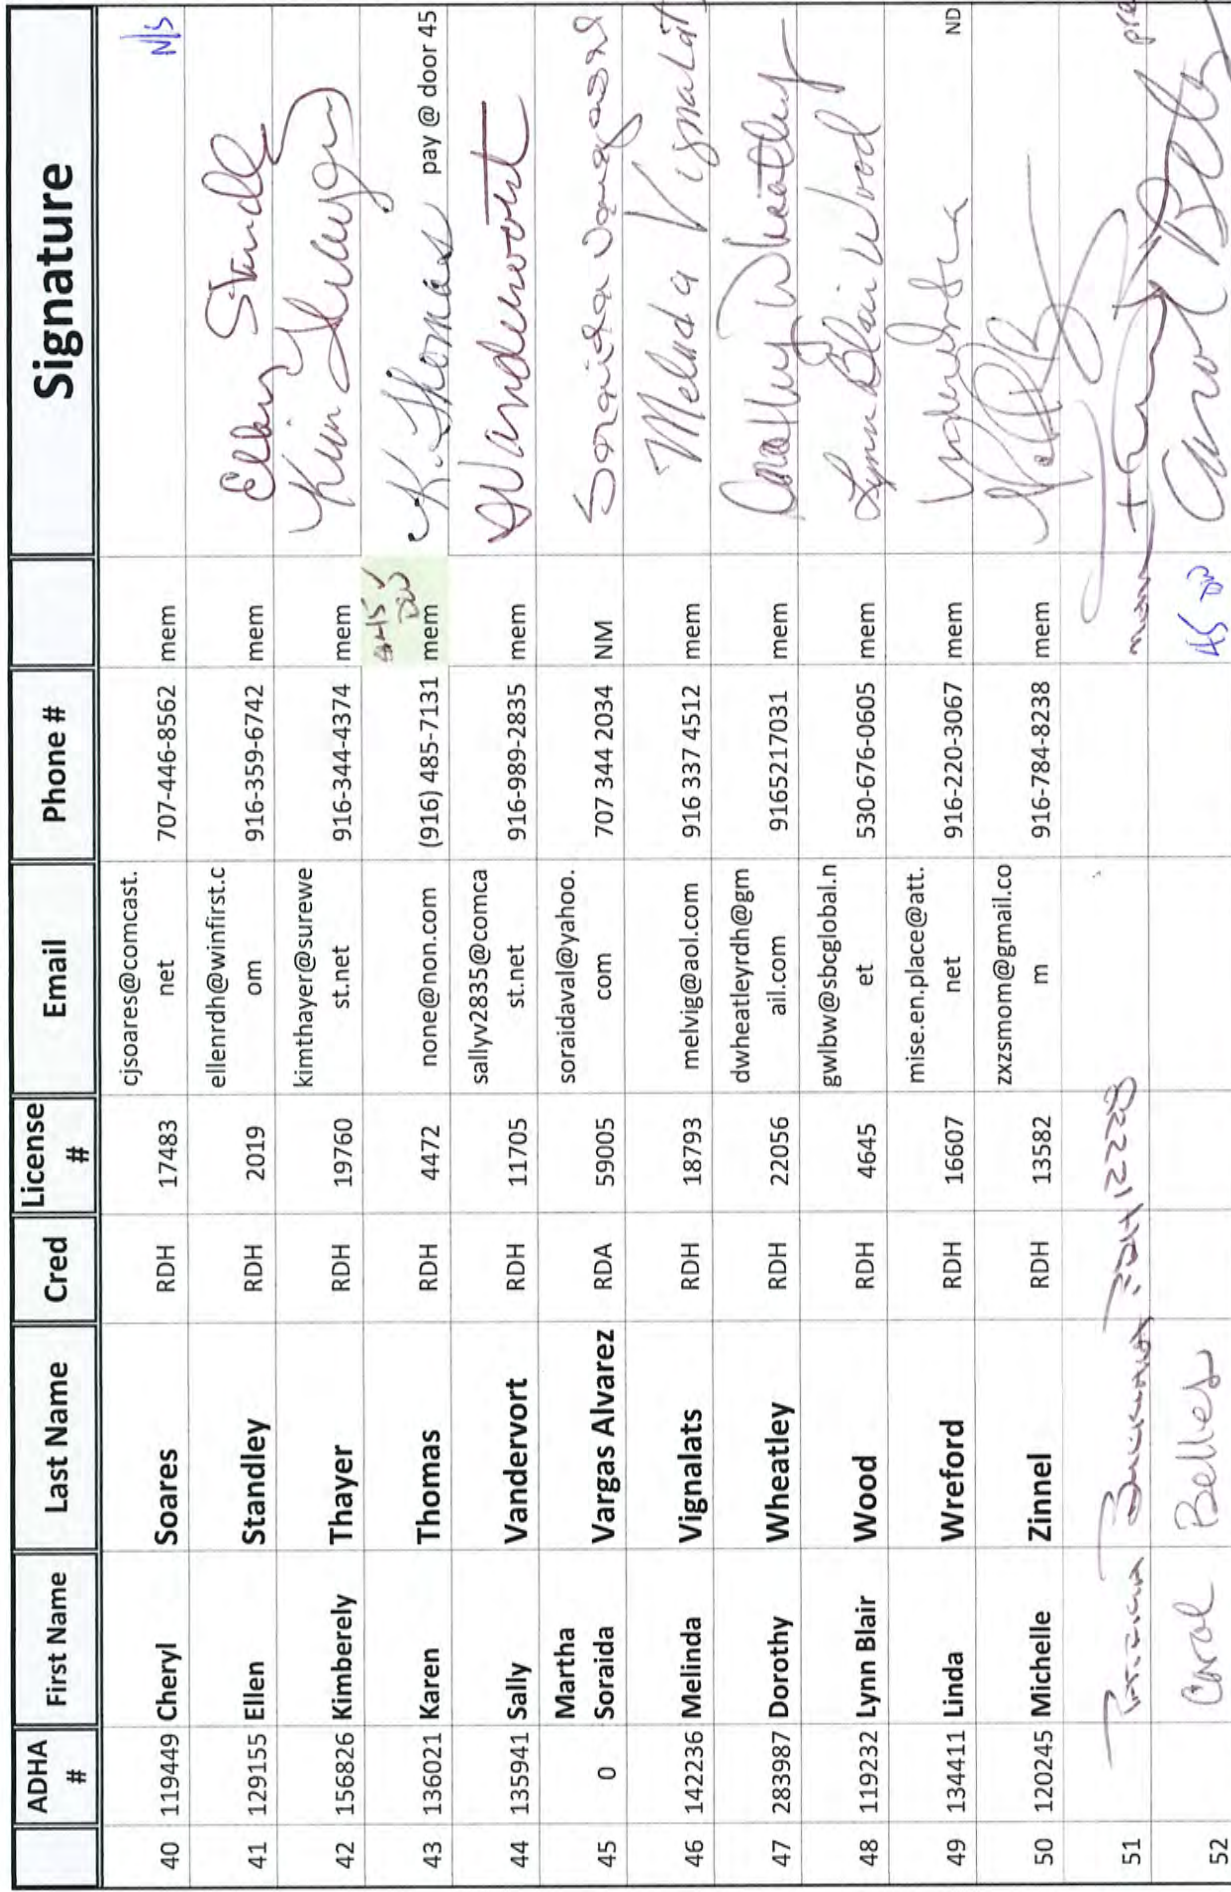 ADHA # First Name Last Name Cred License # Email Phone # Signature
40 119449 Cheryl Soares RDH 17483 cjsoares@comcast.net 707-446-8562 mem N/S
41 129155 Ellen Standley RDH 2019 ellenrdh@winfirst.com 916-359-6742 mem
42 156826 Kimberely Thayer RDH 19760 kimthayer@surewest.net 916-344-4374 mem
43 136021 Karen Thomas RDH 4472 none@non.com (916) 485-7131 mem K. Thomas pay @ door 45
44 135941 Sally Vandervort RDH 11705 sallyv2835@comcast.net 916-989-2835 mem
45 0 Martha Soraida Vargas Alvarez RDA 59005 soraidaval@yahoo.com 707 344 2034 NM
46 142236 Melinda Vignalats RDH 18793 melvig@aol.com 916 337 4512 mem
47 283987 Dorothy Wheatley RDH 22056 dwheatleyrdh@gmail.com 9165217031 mem Dorothy Wheatley
48 119232 Lynn Blair Wood RDH 4645 gwlbw@sbcglobal.net 530-676-0605 mem Lynn Blair Wood
49 134411 Linda Wreford RDH 16607 mise.en.place@att.net 916-220-3067 mem ND
50 120245 Michelle Zinnel RDH 13582 zxzsmom@gmail.com 916-784-8238 mem
51 RDH 12228
52 Carol Belles 45